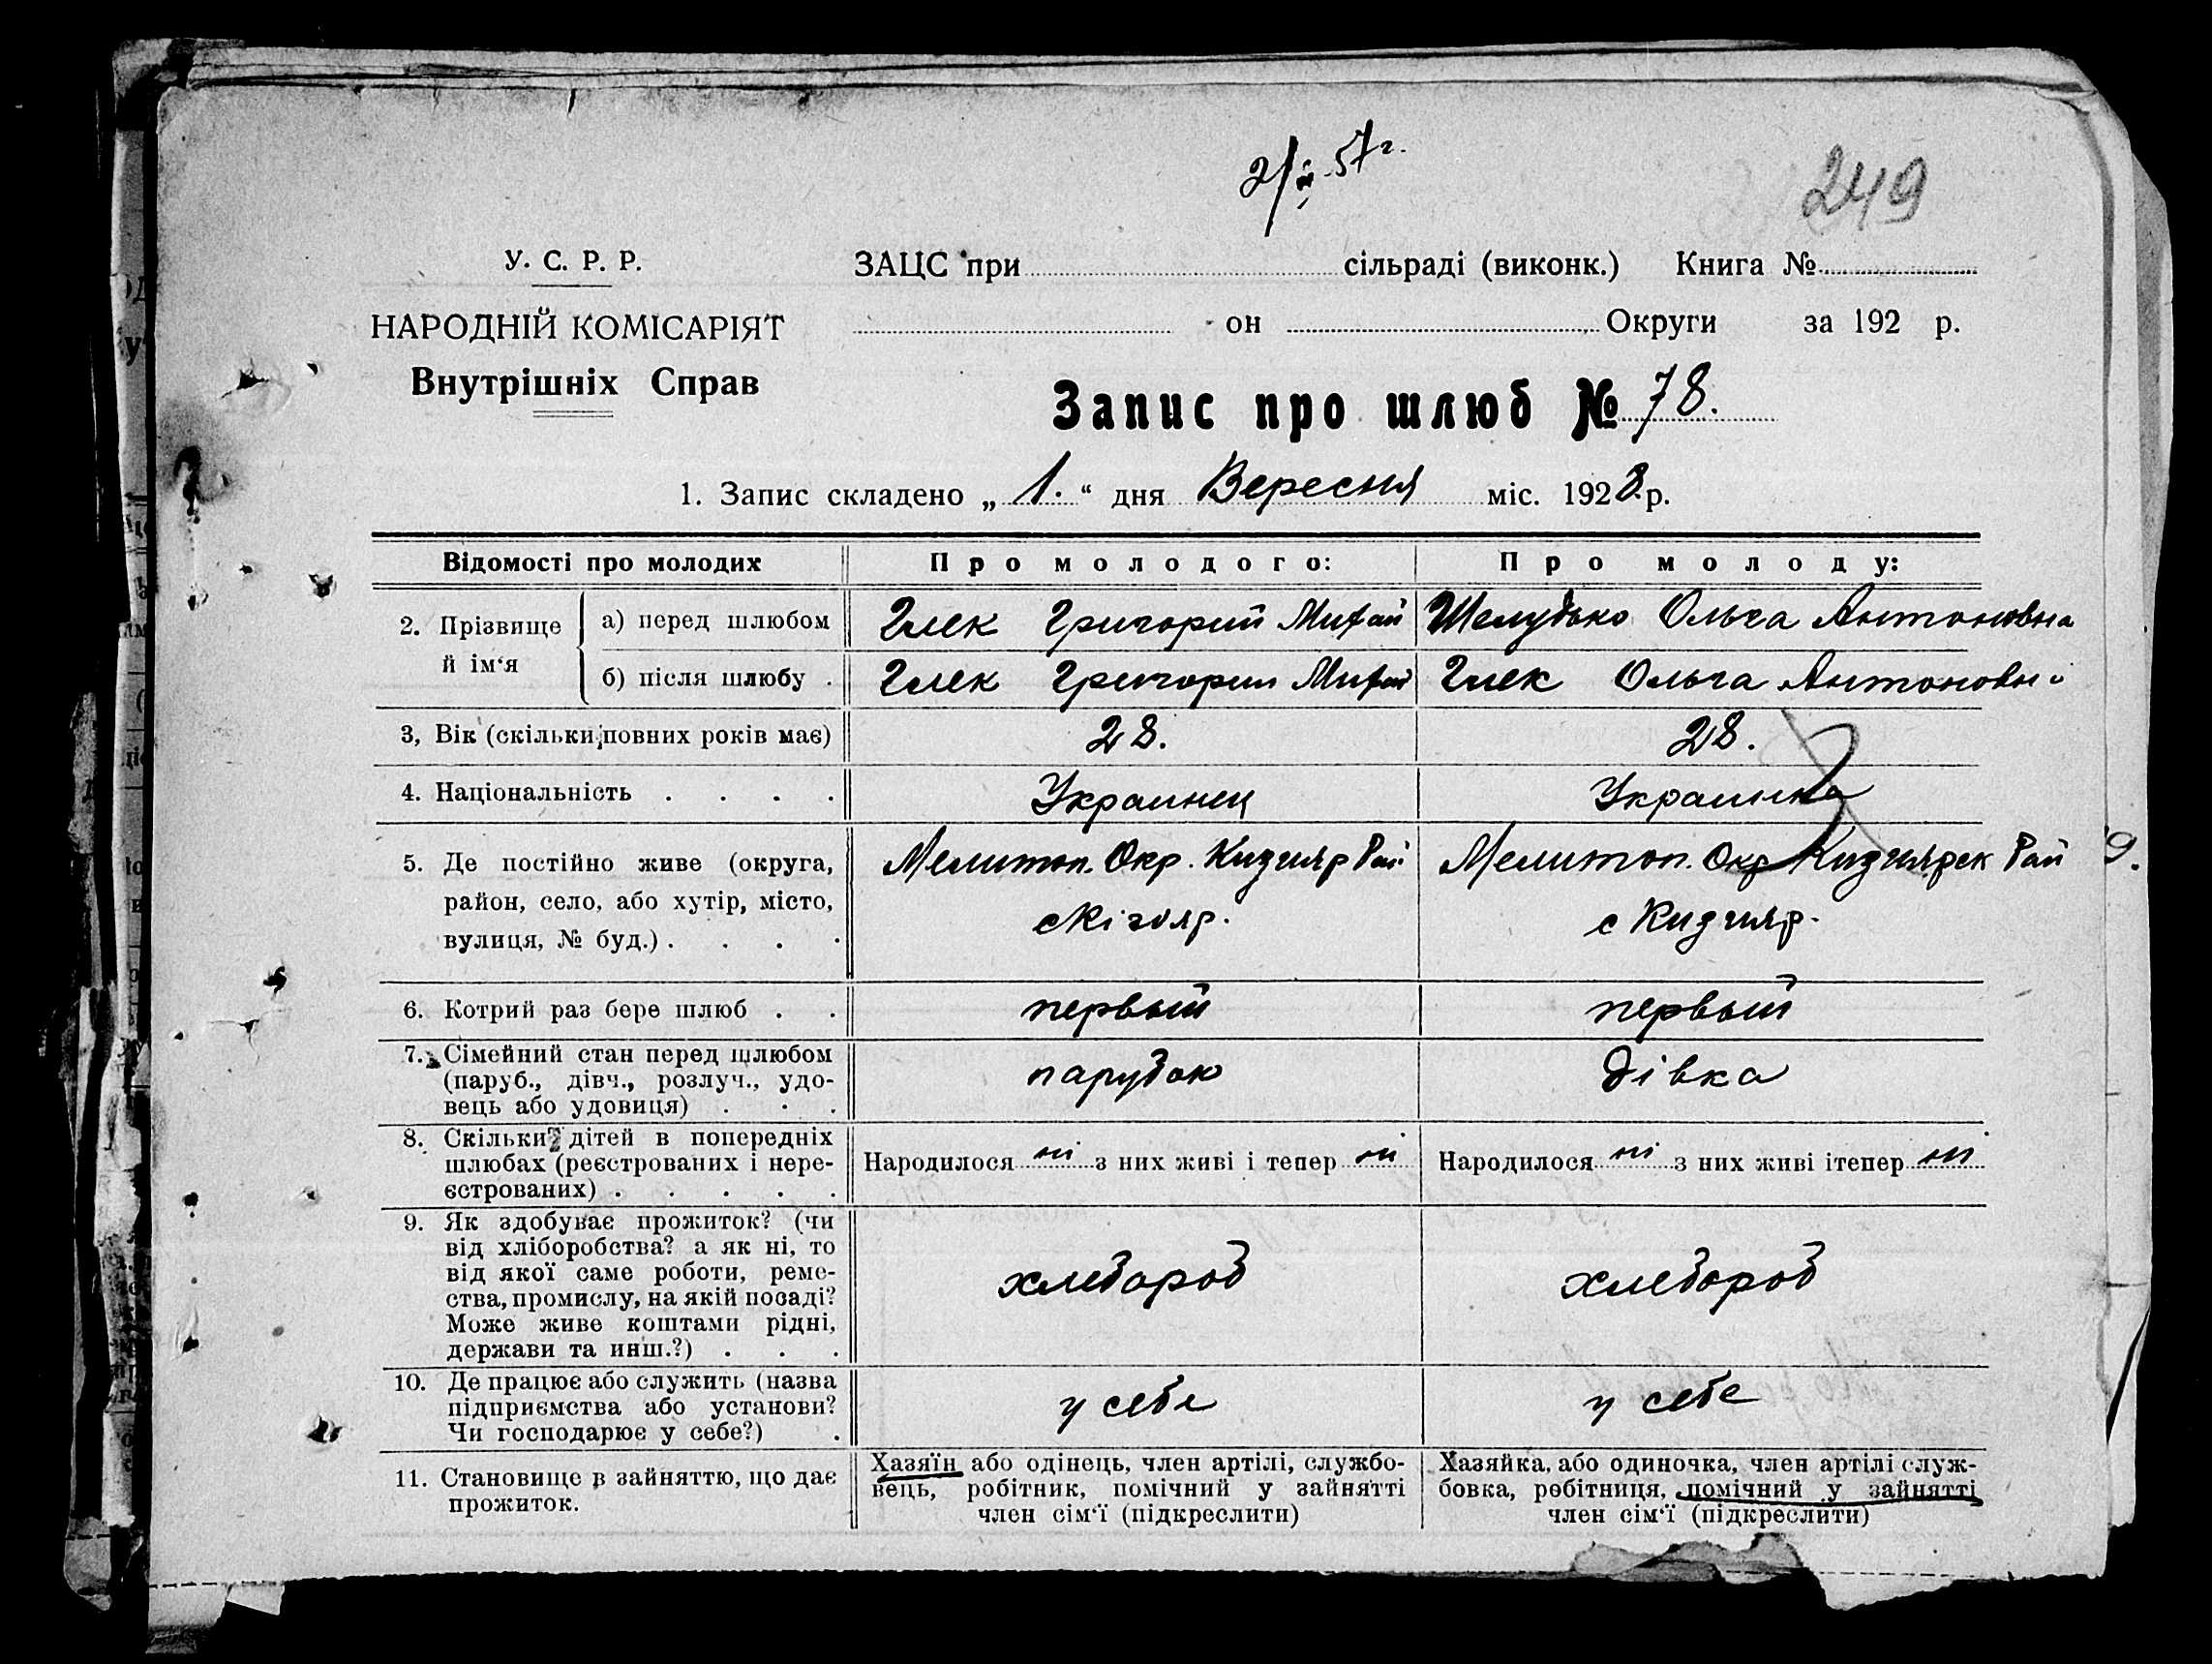 249
У. С. Р. Р.
ЗАЦС при сільраді (виконк.) Книга №
НАРОДНІЙ КОМІСАРІЯТ
он Округи за 192 р.
Внутрішніх Справ
Запис про шлюб № 78.
1. Запис складено „ 1. “ дня Вересня міс. 1928 р.
Відомості про молодих
Про молодого:
Про молоду:
2. Прізвище й ім‘я
а) перед шлюбом
Глек Григорий Михай
Шелудько Ольга Антоновна
б) після шлюбу .
Глек Григорий Михай
Глек Ольга Антоновн
3, Вік (скільки повних років має)
28.
28.
4. Національність . . . .
Украинец
Украинка
5. Де постійно живе (округа,
район, село, або хутір, місто,
вулиця, № буд.) . . . .
Мелитоп. Окр. Кизияр Рай
с
Мелитоп. Окр Кизиярск Рай
с Кизияр.
6. Котрий раз бере шлюб . .
первый
первый
7. Сімейний стан перед шлюбом
(паруб., дівч., розлуч., удо-
вець або удовиця) . . .
парубок
дівка
8. Скільки дітей в попередніх
шлюбах (реєстрованих і нере-
єстрованих) . . . . .
Народилося ні з них живі і тепер ні
Народилося ні з них живі ітепер ні
9. Як здобуває прожиток? (чи
від хліборобства? а як ні, то
від якої саме роботи, реме-
ства, промислу, на якій посаді?
Може живе коштами рідні,
держави та инш.?) . . .
хлебороб
хлебороб
10. Де працює або служить (назва
підприємства або установи?
Чи господарює у себе?) .
у себе
у себе
11. Становище в зайняттю, що дає
прожиток.
Хазяїн або одінець, член артілі, службо-
вець, робітник, помічний у зайнятті
член сім‘ї (підкреслити)
Хазяйка, або одиночка, член артілі служ-
бовка, робітниця, помічний у зайнятті
член сім‘ї (підкреслити)